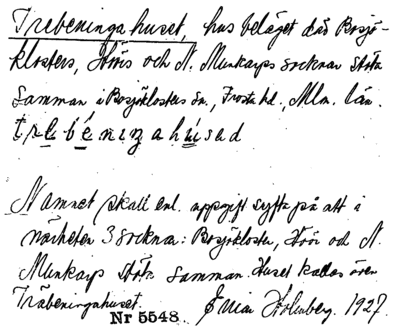 Trebeningahuset, hus beläget där Bosjö-
klosters, Höörs och N. Munkarps socknar stöta
samman i Bosjöklosters sn., Frosta hd., Mlm. län.
trebéningahúsad
Namnet skall enl. uppgift syfta på att i
närheten 3 socknar: Bosjökloster, Höör och N.
Munkarp stöta samman. Huset kallas även
Träbeningahuset.
Nr 5548. Holmberg. 1927.